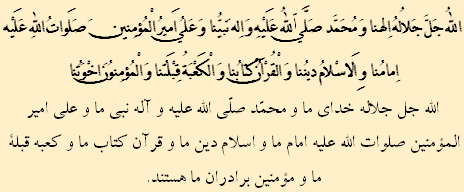 اللهُ جَلَّ جَلالُهُ اِلهُنا وَ مُحَمَّد صَلَّی اللهُ عَلَيْهِ وَ الِه نَبيُّنا وَ عَلي اَميرُ الْمُؤْمِنين صَلَواتُ اللهِ عَلَيه
اِمامُنا وَ الاِسْلامُ دينُنا وَ الْقُرْآنُ كِتابُنا وَ الْكَعْبَةُ قِبْلَتُنا وَ الْمُؤمِنُونَ اِخْوَتُنا
الله جل جلاله خدای ما و محمّد صلّی الله علیه و آله نبی ما و علی امیر
المؤمنین صلوات الله علیه امام ما و اسلام دین ما و قرآن کتاب ما و کعبه قبلهٔ
ما و مؤمنین برادران ما هستند.